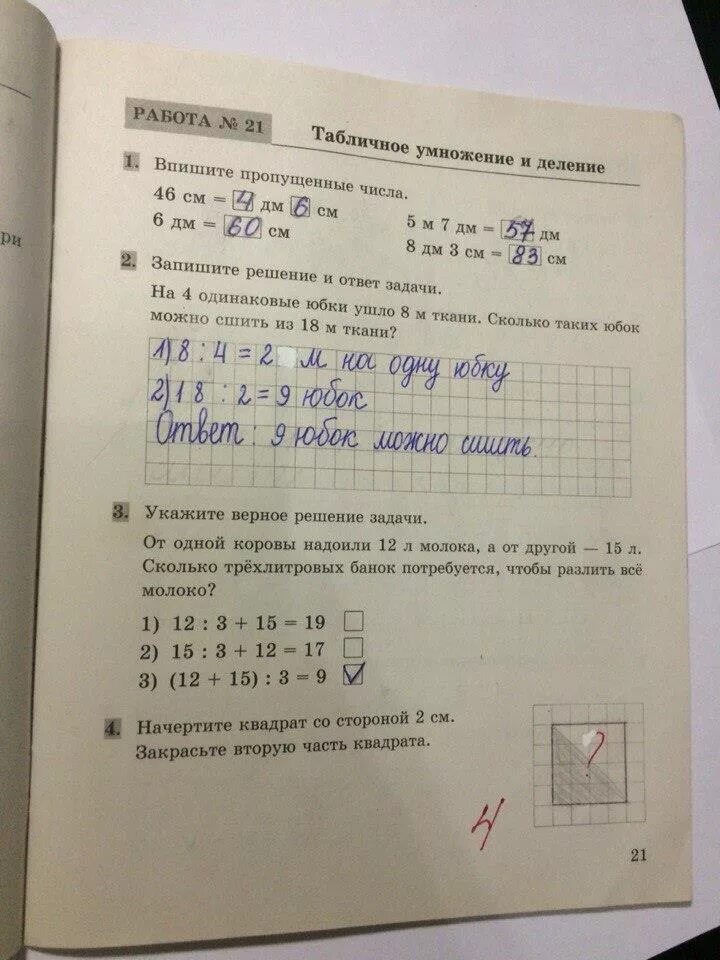 РАБОТА № 21
Табличное умножение и деление
1. Впишите пропущенные числа.
46 см = 4 дм 6 см
5 м 7 дм = 57 дм
6 дм = 60 см
8 дм 3 см = 83 см
2. Запишите решение и ответ задачи.
На 4 одинаковые юбки ушло 8 м ткани. Сколько таких юбок
можно сшить из 18 м ткани?
1) 8 : 4 = 2 м на одну юбку
2) 18 : 2 = 9 юбок
Ответ : 9 юбок можно сшить.
3. Укажите верное решение задачи.
От одной коровы надоили 12 л молока, а от другой — 15 л.
Сколько трёхлитровых банок потребуется, чтобы разлить всё
молоко?
1) 12 : 3 + 15 = 19
2) 15 : 3 + 12 = 17
3) (12 + 15) : 3 = 9
4. Начертите квадрат со стороной 2 см.
Закрасьте вторую часть квадрата.
?
4
21
ри